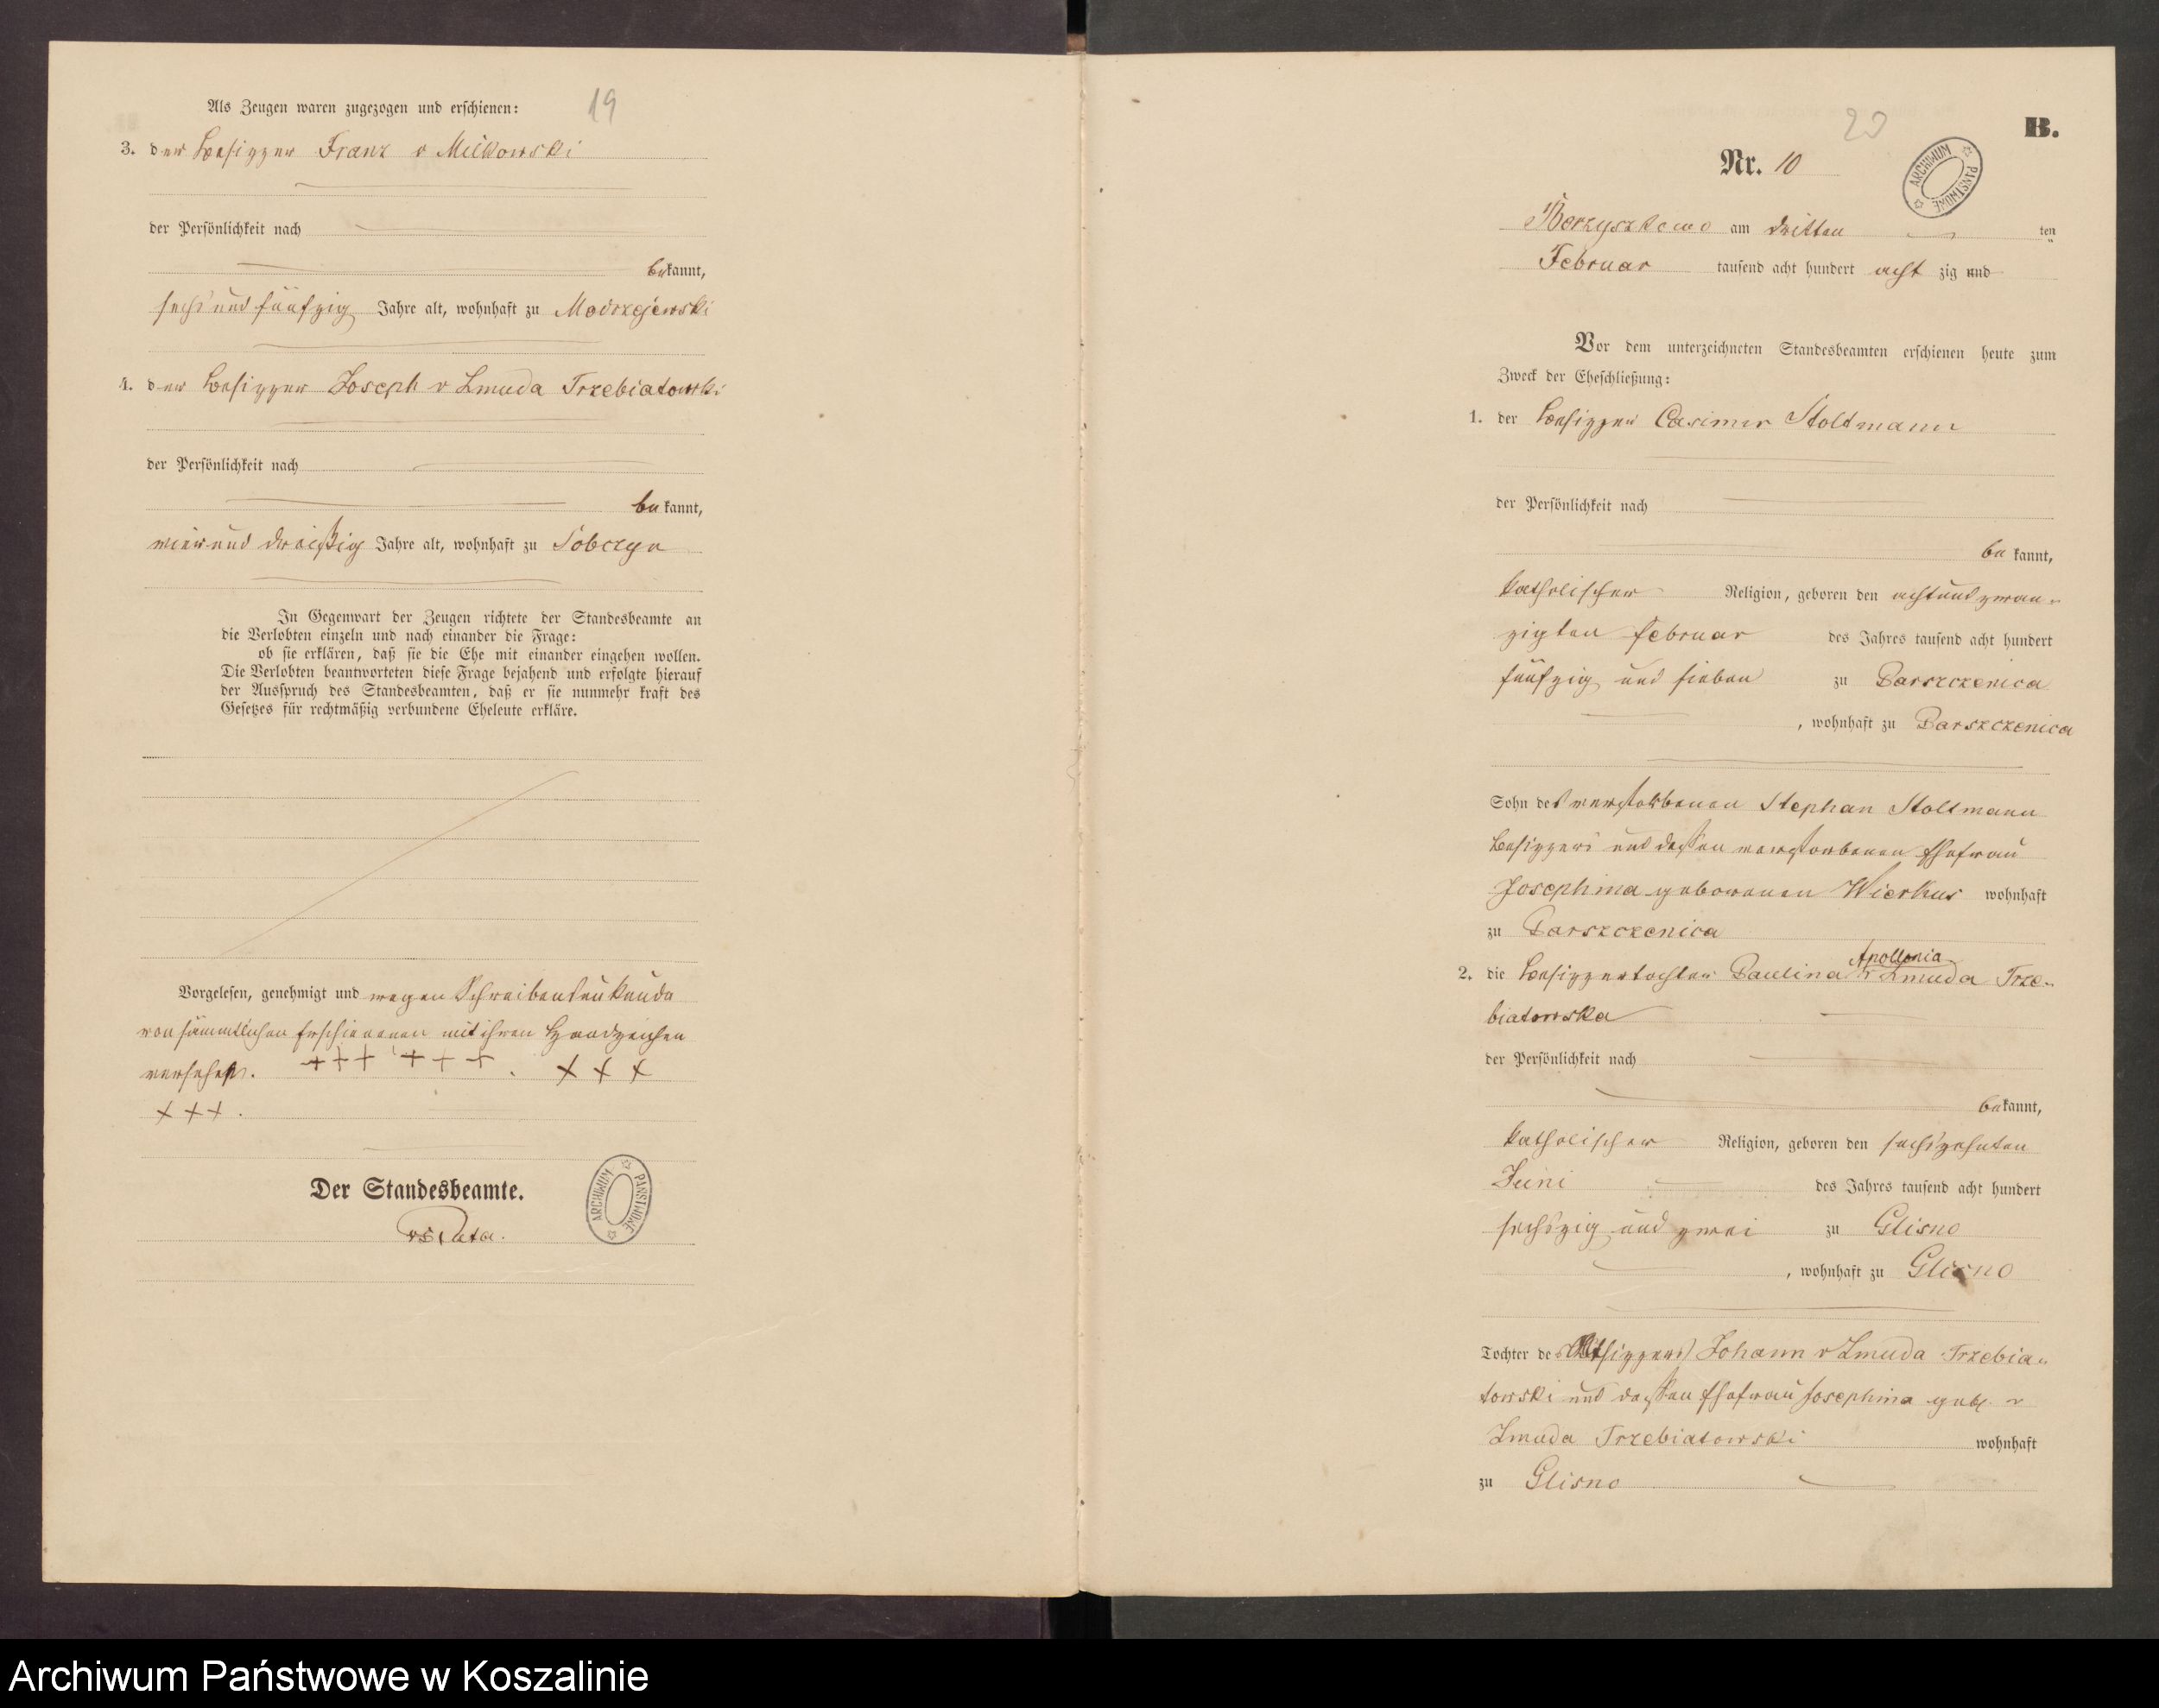 Als Zeugen waren zugezogen und erschienen:
19
3. der Besitzer Franz v Milkowski
der Persönlichkeit nach
bekannt,
sechs und fünfzig Jahre alt, wohnhaft zu Modrzejewski
4. der Besitzer Joseph v Zmuda Trzebiatowski
der Persönlichkeit nach
bekannt,
vier und dreißig Jahre alt, wohnhaft zu Sobczyn
In Gegenwart der Zeugen richtete der Standesbeamte an
die Verlobten einzeln und nach einander die Frage:
ob sie erklären, daß sie die Ehe mit einander eingehen wollen.
Die Verlobten beantworteten diese Frage bejahend und erfolgte hierauf
der Ausspruch des Standesbeamten, daß er sie nunmehr kraft des
Gesetzes für rechtmäßig verbundene Eheleute erkläre.
Vorgelesen, genehmigt und wegen Schreibensunkunde
von sämmtlichen Erschienenen mit ihren Handzeichen
versehen. +++ +++. +++
+++.
Der Standesbeamte.
ARCHIWUM PAŃSTWOWE
20
B.
Nr. 10
ARCHIWUM PAŃSTWOWE
Borzyszkowo am dritten ten
Februar tausend acht hundert acht zig und
Vor dem unterzeichneten Standesbeamten erschienen heute zum
Zweck der Eheschließung:
1. der Besitzer Casimir Stoltmann
der Persönlichkeit nach
bekannt,
katholischer Religion, geboren den achtundzwan-
zigten Februar des Jahres tausend acht hundert
fünfzig und sieben zu Parszczenica
, wohnhaft zu Parszczenica
Sohn des verstorbenen Stephan Stoltmann
Besitzers und dessen verstorbenen Ehefrau
Josephina geborenen Wierkus wohnhaft
zu Parszczenica
Apollonia
2. die Besitzertochter Paulina v Zmuda Trze-
biatowska
der Persönlichkeit nach
bekannt,
katholischer Religion, geboren den sechszehnten
Juni des Jahres tausend acht hundert
sechszig und zwei zu Glisno
, wohnhaft zu Glisno
Tochter des Altsitzers Johann v Zmuda Trzebia-
towski und dessen Ehefrau Josephina geb. v
Zmuda Trzebiatowski wohnhaft
zu Glisno
Archiwum Państwowe w Koszalinie